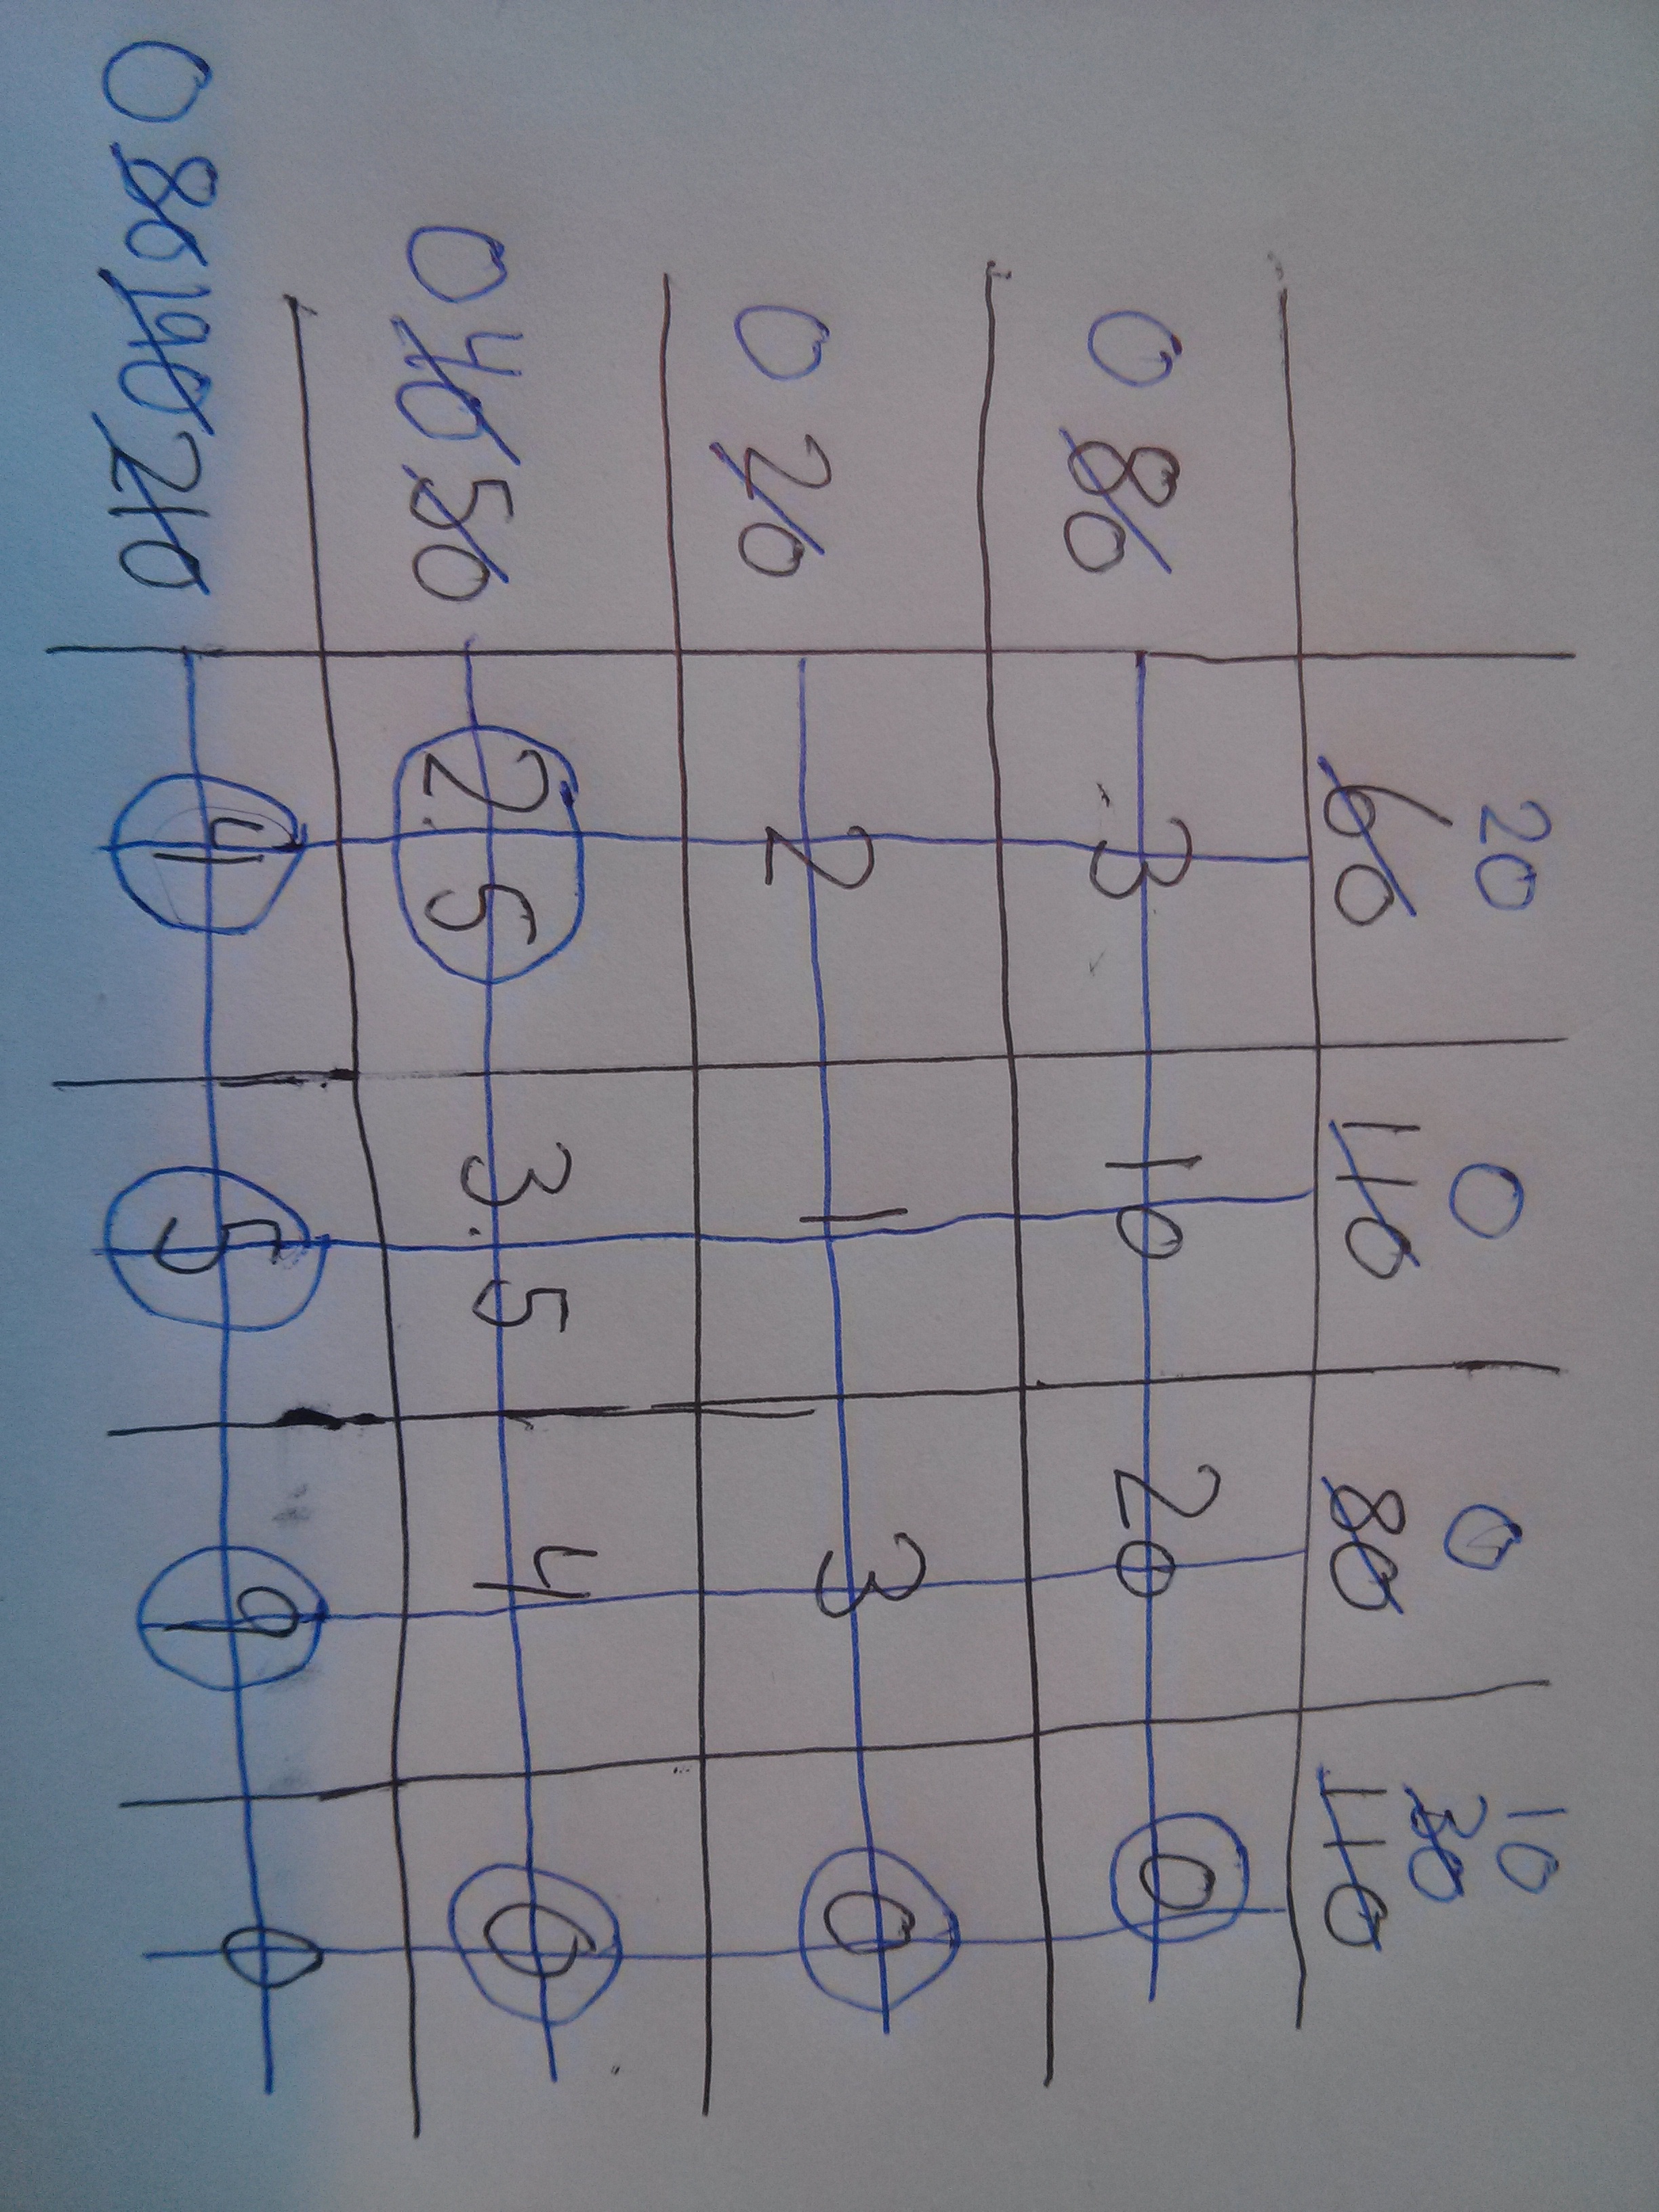 20 0 0 10
30
60 110 80 110
0 80 3 10 20 0
0 20 2 1 3 0
0 40 50 2.5 3.5 4 0
0 80 190 210 4 5 9 0